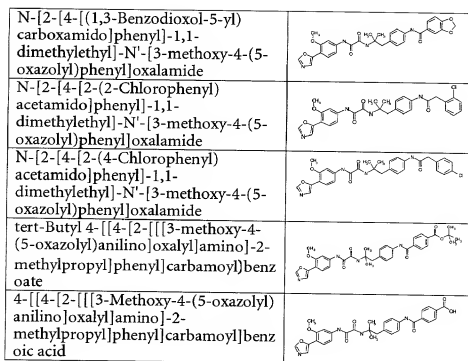 N-[2-[4-[(1,3-Benzodioxol-5-yl)
carboxamido]phenyl]-1,1-
dimethylethyl]-N'-[3-methoxy-4-(5-
oxazolyl)phenyl]oxalamide
N-[2-[4-[2-(2-Chlorophenyl)
acetamido]phenyl]-1,1-
dimethylethyl]-N'-[3-methoxy-4-(5-
oxazolyl)phenyl]oxalamide
N-[2-[4-[2-(4-Chlorophenyl)
acetamido]phenyl]-1,1-
dimethylethyl]-N'-[3-methoxy-4-(5-
oxazolyl)phenyl]oxalamide
tert-Butyl 4-[[4-[2-[[[3-methoxy-4-
(5-oxazolyl)anilino]oxalyl]amino]-2-
methylpropyl]phenyl]carbamoyl)benz
oate
4-[[4-[2-[[[3-Methoxy-4-(5-oxazolyl)
anilino]oxalyl]amino]-2-
methylpropyl]phenyl]carbamoyl]benz
oic acid